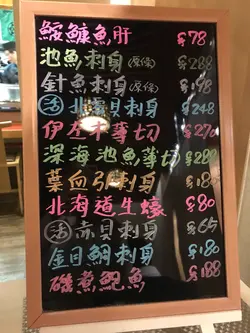 鮟鱇魚肝 $78
池魚刺身(原條) $288
針魚刺身(原條) $198
活 北寄貝刺身 $248
伊佐木薄切 $270
深海池魚薄切 $288
葉血引刺身 $180
北海道生蠔 $80
活 赤貝刺身 $65
金目鯛刺身 $180
磯煮鮑魚 $188